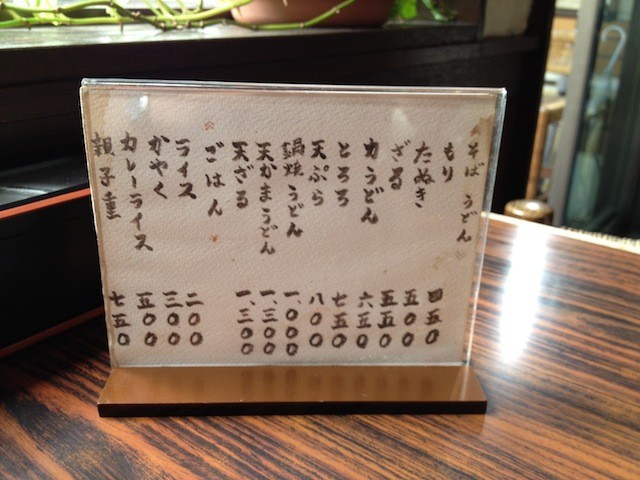 《そば うどん》
もり 四五〇
たぬき 五〇〇
ざる 五五〇
力うどん 六五〇
とろろ 七五〇
天ぷら 八〇〇
鍋焼うどん 一、〇〇〇
天かまうどん 一、三〇〇
天ざる 一、三〇〇
《ごはん
ライス 二〇〇
かやく 三〇〇
カレーライス 五〇〇
親子重 七五〇